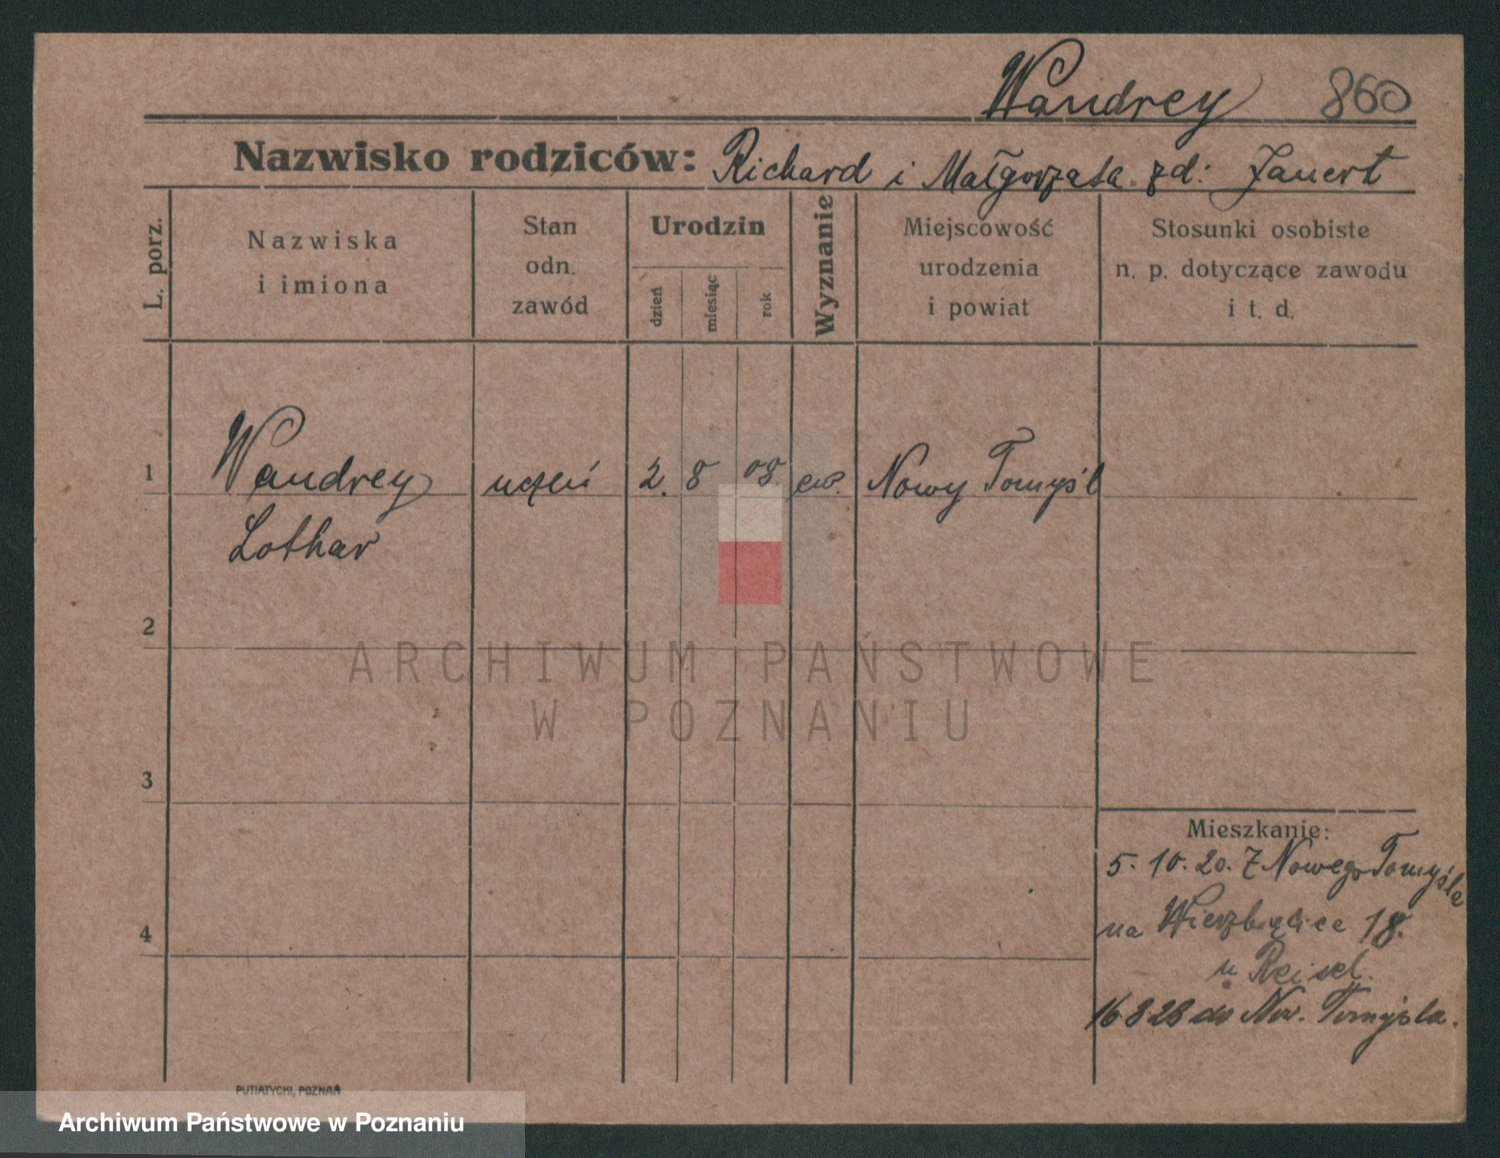 Wandrey 860
Nazwisko rodziców: Richard i Małgorzata zd: Jauert
L. porz.
Nazwiska
i imiona
Stan
odn.
zawód
Urodzin
dzień
miesiąc
rok
Wyznanie
Miejscowość
urodzenia
i powiat
Stosunki osobiste
n. p. dotyczące zawodu
i t. d.
1 Wandrey uczeń 2. 8 08. ew. Nowy Tomyśl
Lothar
2
ARCHIWUM PAŃSTWOWE
W POZNANIU
3
Mieszkanie:
5. 10. 20. Z Nowego Tomyśla
na Wierzbięcice 18.
4
u Reisel.
16 8 28 do Now. Tomyśla.
PUTIATYCKI, POZNAŃ
Archiwum Państwowe w Poznaniu